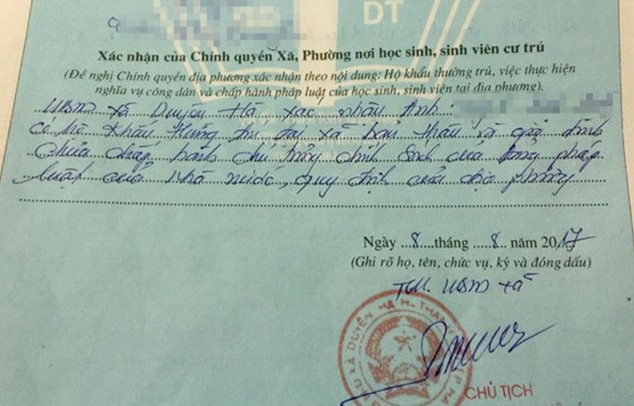 DT
Xác nhận của Chính quyền Xã, Phường nơi học sinh, sinh viên cư trú
(Đề nghị Chính quyền địa phương xác nhận theo nội dung: Hộ khẩu thường trú, việc thực hiện
nghĩa vụ công dân và chấp hành pháp luật của học sinh, sinh viên tại địa phương)
UBND xã Duyên Hà xác nhận
có hộ khẩu thường trú tại xã bản thân và gia đình
chưa chấp hành chủ trương chính sách của pháp
luật của Nhà nước, quy định của địa phương
Ngày 8 tháng 8 năm 2017
(Ghi rõ họ, tên, chức vụ, ký và đóng dấu)
TM. UBND xã
XÃ DUYÊN HÀ H. THANH
CHỦ TỊCH